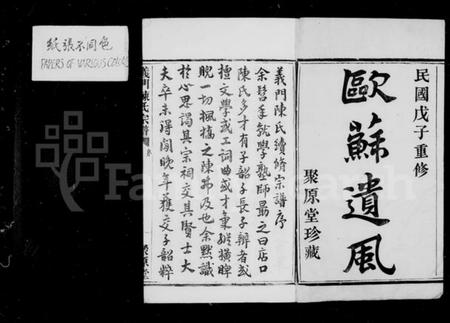 紙張不同色
PAPERS OF VARIOUS COLORS
民國戊子重修
歐蘇遺風
聚原堂珍藏
義門陳氏續修宗譜序
余髫年就學塾師勗之曰店口
陳氏多才有子韶子長子辨者或
擅文學或工詞曲或才氣縱橫睥
睨一切楓橋之陳弗及也余默識
於心思謁其宗祠交其賢士大
夫卒未得閒晚年獲交子韶粹
義門陳氏宗譜